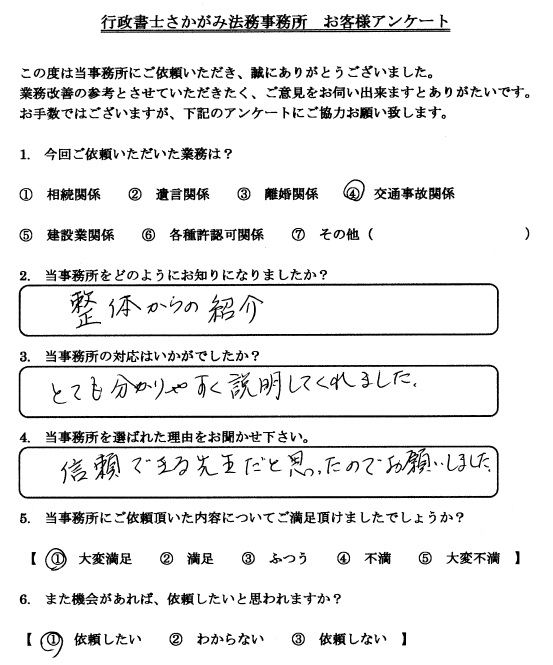 行政書士さかがみ法務事務所　お客様アンケート
この度は当事務所にご依頼いただき、誠にありがとうございました。
業務改善の参考とさせていただきたく、ご意見をお伺い出来ますとありがたいです。
お手数ではございますが、下記のアンケートにご協力お願い致します。
1.　今回ご依頼いただいた業務は？
①　相続関係　②　遺言関係　③　離婚関係　④　交通事故関係
⑤　建設業関係　⑥　各種許認可関係　⑦　その他（　　　　　　　　　　）
2.　当事務所をどのようにお知りになりましたか？
整体からの紹介
3.　当事務所の対応はいかがでしたか？
とても分かりやすく説明してくれました。
4.　当事務所を選ばれた理由をお聞かせ下さい。
信頼できる先生だと思ったのでお願いしました
5.　当事務所にご依頼頂いた内容についてご満足頂けましたでしょうか？
【　①　大変満足　②　満足　③　ふつう　④　不満　⑤　大変不満　】
6.　また機会があれば、依頼したいと思われますか？
【　①　依頼したい　②　わからない　③　依頼しない　】